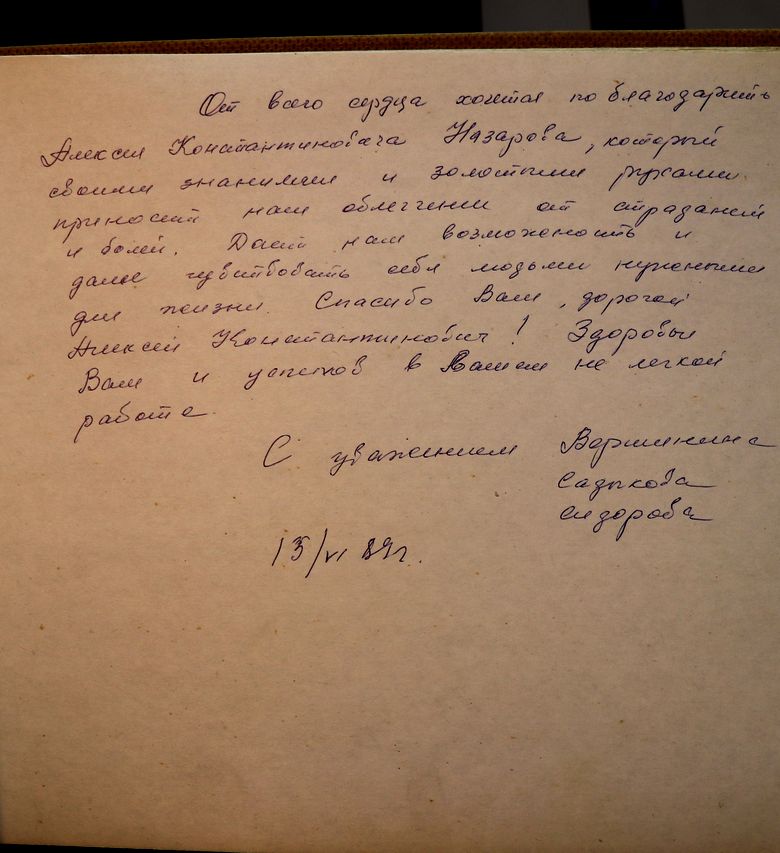 От всего сердца хочется по благодарить
Алексея Константиновича Назарова, который
своими знаниями и золотыми руками
приносит нам облегчение от страданий
и болей. Дает нам возможность и
далее чувствовать себя людьми нужными
для жизни. Спасибо Вам, дорогой
Алексей Константинович! Здоровья
Вам и успехов в Вашем не легкой
работе.
С уважением Вершинина
Садыкова
Сидорова
15/VI 89г.